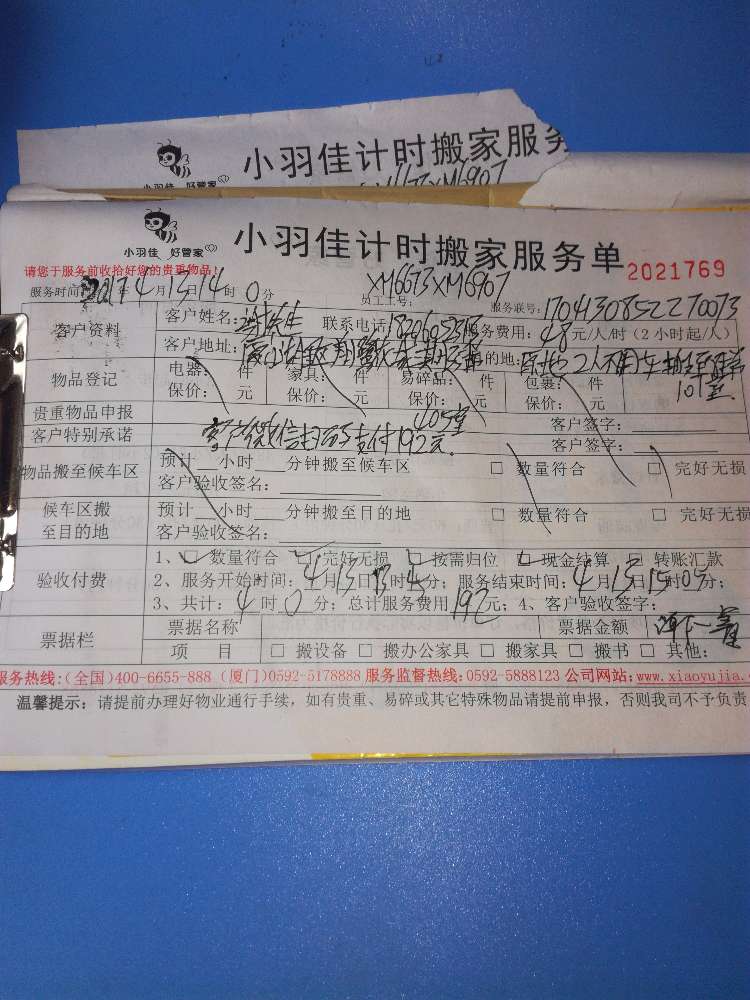 小羽佳 好管家
小羽佳计时搬家服务
XM6673XM6907
小羽佳 好管家
小羽佳计时搬家服务单 2021769
请您于服务前收拾好您的贵重物品!
服务时间: 2017年4月13日14时0分 员工工号: XM6673XM6907 服务联号:
客户资料 客户姓名: 谢先生 联系电话: 服务费用: 48元/人/时(2小时起/人)
客户地址: 目的地:
物品登记 电器: 件 家具: 件 易碎品: 件 包裹: 件
保价: 元 保价: 元 保价: 元 保价: 元 101室
贵重物品申报 405室 客户签字:
客户特别承诺 客户微信扫码支付192元. 客户签字:
物品搬至候车区 预计 小时 分钟搬至候车区 □ 数量符合 □ 完好无损
客户验收签名:
候车区搬至目的地 预计 小时 分钟搬至目的地 □ 数量符合 □ 完好无损
客户验收签名:
验收付费 1、□ 数量符合 □ 完好无损 □ 按需归位 □ 现金结算 □ 转账汇款
2、服务开始时间: 4月13日13时 分; 服务结束时间: 4月13日15时05分;
3、共计: 4时0分; 总计服务费用192元; 4、客户验收签字:
票据栏 票据名称 票据金额
项 目 □ 搬设备 □ 搬办公家具 □ 搬家具 □ 搬书 □ 其他:
服务热线:(全国)400-6655-888 (厦门)0592-5178888 服务监督热线:0592-5888123 公司网站:www.xiaoyujia.
温馨提示: 请提前办理好物业通行手续,如有贵重、易碎或其它特殊物品请提前申报,否则我司不予负责